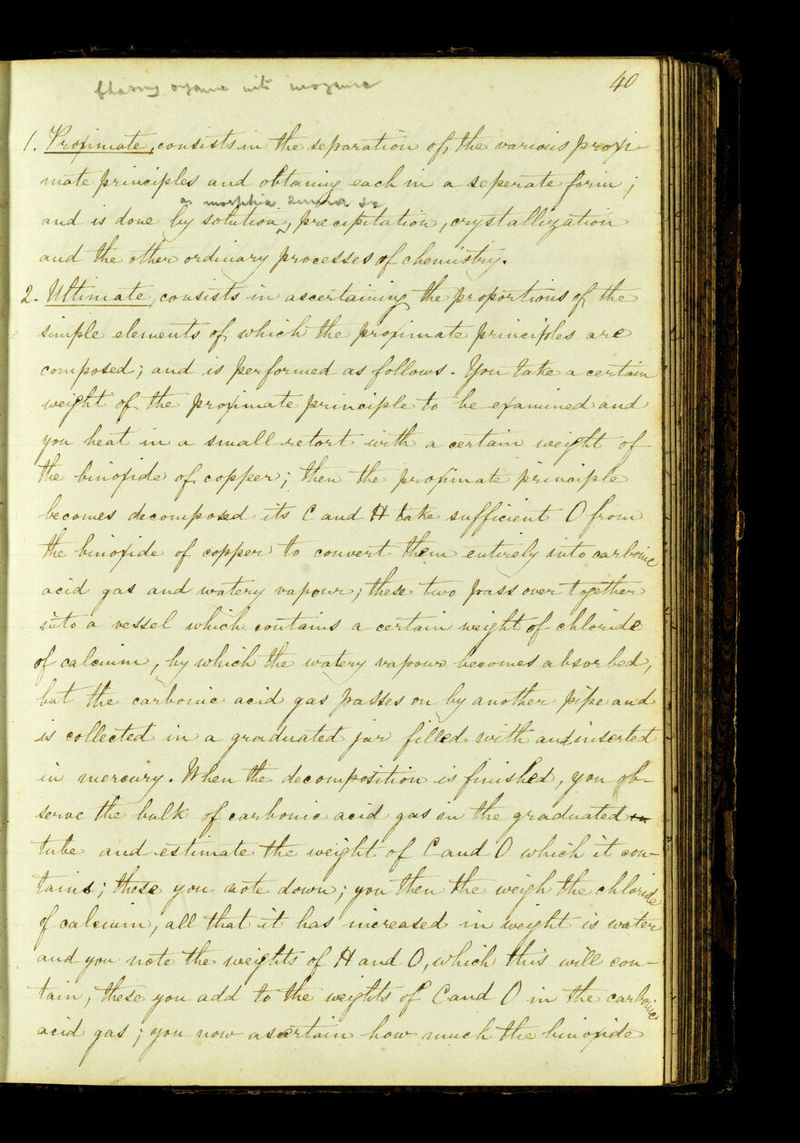 organic into inorganic
40
1. Proximate, consists in the separation of, the various proxi-
mate principles and obtaining each in a seperate form ;
as morphia, &c
and is done by solution, precipitation, crystallization
and the other ordinary processes of chemistry.
2. Ultimate, consists in ascertaining the proportions of, the
simple elements of, which the proximate principles are
composed; and is performed as follows. You take a certain
weight of the proximate principle to be examined and
you heat in a small retort with a certain weight of
the binoxide of copper; then the proximate principle
becomes decomposed its C and H take sufficient O from
the binoxide of copper to convert them entirely into carbonic
acid gas and watery vapour; these two pass over together
into a vessel which contains a certain weight of chloride
of calcium, by which the watery vapour becomes absorbed,
but the carbonic acid gas passes on by another pipe and
is collected in a graduated jar filled with and inserted
in mercury. When the decomposition is finished, you ob-
serve the bulk of carbonic acid gas in the graduated
tube and estimate the weight of C and O which it con-
tains; these you note down; you then the weigh the chloride
of calcium, all that it has increased in weight is water
and you note the weights of H and O, which this will con-
tain, these you add to the weights of C and O in the carbonic
acid gas ; you now ascertain how much the binoxide